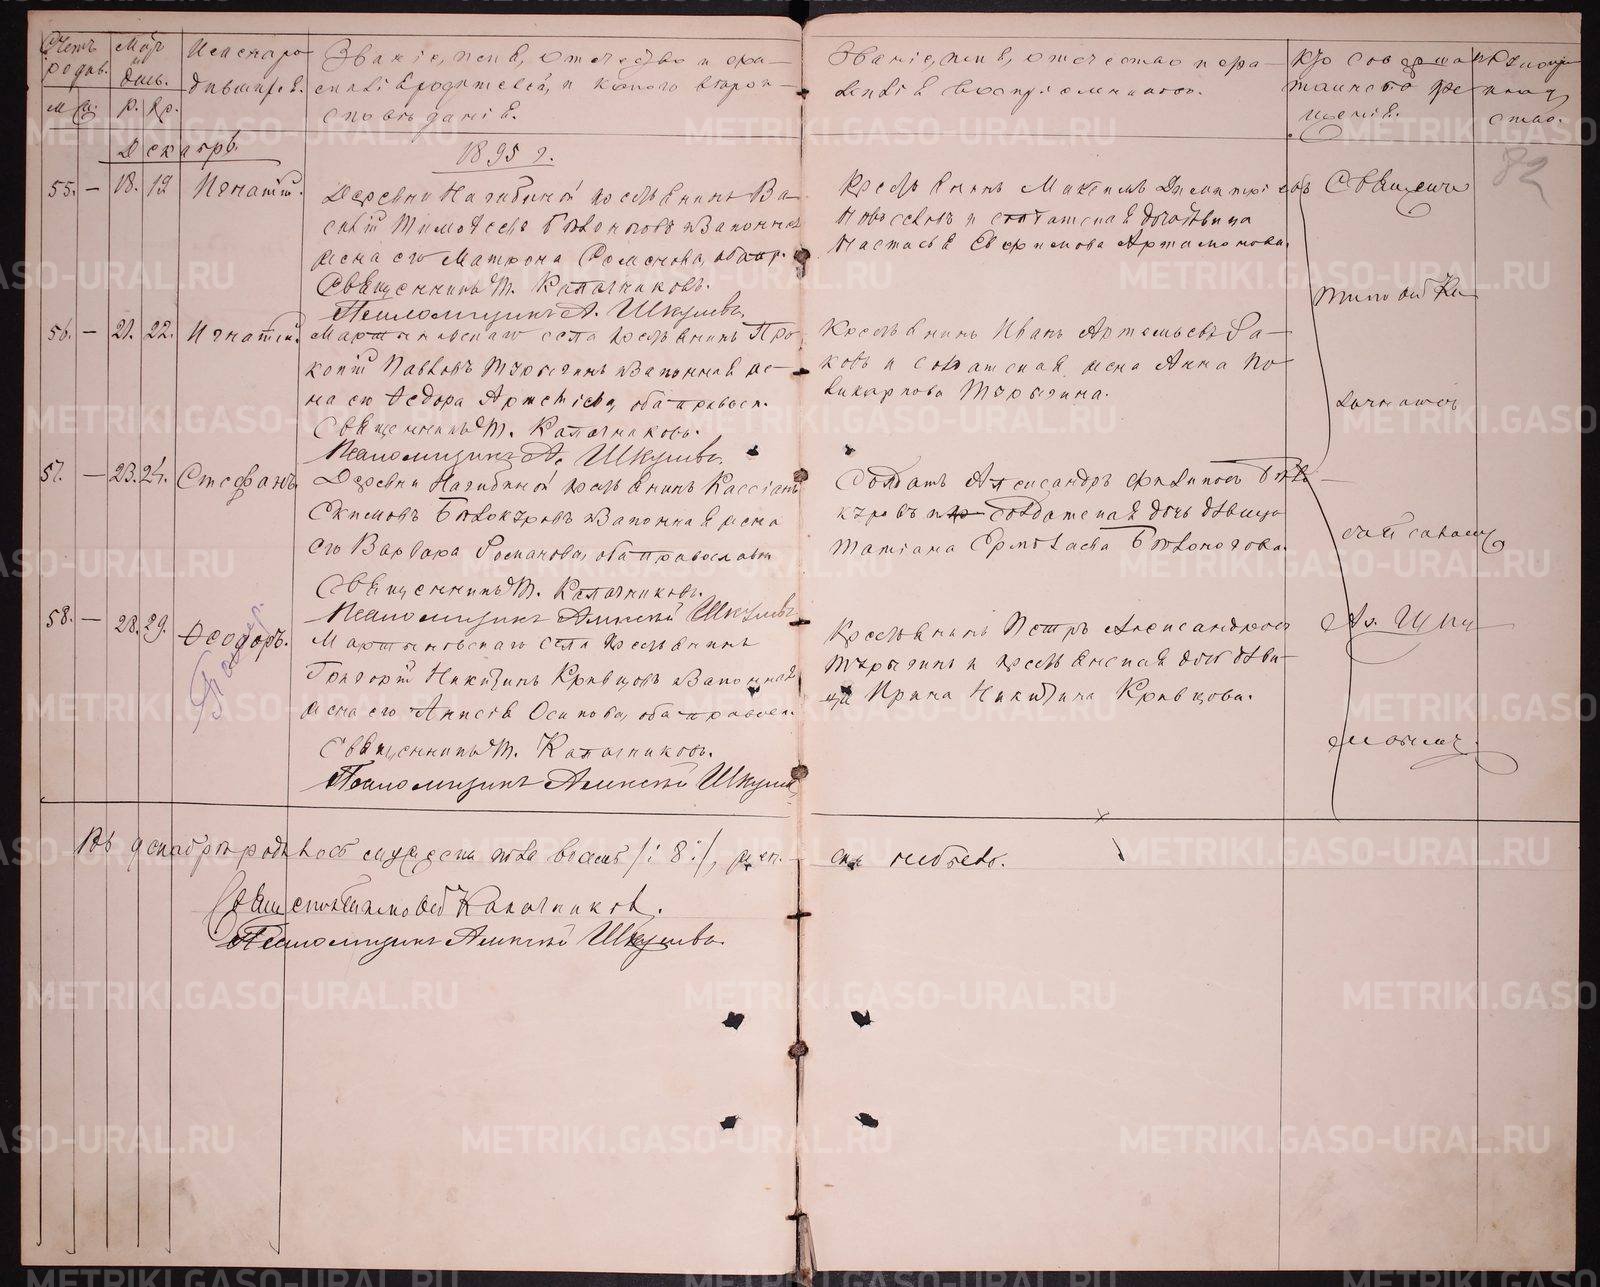 Счетъ родив.
М. Ж.
Мѣс. день.
Р. Кр.
Имена ро-
дившихся.
Званіе, имя, отчество и фа-
милія родителей, и какого вѣроис-
повѣданія.
Званіе, имя, отчество и фа-
милія воспріемниковъ.
Кто совершалъ
таинство кре-
щенія.
Декабрь.
1895 г.
82
55. — 18. 19 Игнатій.
Деревни Нагибиной крестьянинъ Ва-
силій Тимофеевъ Бѣлоноговъ и законная
жена его Матрона Романова, оба пр.
Священникъ Т. Калачниковъ.
Псаломщикъ А. Шкулевъ.
Крестьянинъ Максимъ Димитріевъ
и солдатская дочь дѣвица
Настасья Евфимова Артамонова.
56. — 21. 22. Игнатій.
Мартыновскаго села крестьянинъ Про-
копій Павловъ Турыгинъ и законная же-
на его Ѳедора Артемьева, оба правосл.
Священникъ Т. Калачниковъ.
Псаломщикъ А. Шкулевъ.
Крестьянинъ Иванъ Артемьевъ Ра-
ковъ и солдатская жена Анна По-
ликарпова Турыгина.
57. — 23. 24. Стефанъ.
Деревни Нагибиной крестьянинъ Кассіанъ
Екимовъ Бѣлокуровъ и законная жена
его Варвара Романова, оба православн.
Священникъ Т. Калачниковъ.
Псаломщикъ Алексѣй Шкулевъ
Солдатъ Александръ Филиповъ Бѣло-
куровъ и солдатская дочь дѣвица
Татіана Ермолаева Бѣлоногова.
58. — 28. 29. Ѳеодоръ.
Мартыновскаго села крестьянинъ
Григорій Никитинъ Кривцовъ и законная
жена его Анисія Осипова, оба правосл.
Священникъ Т. Калачниковъ.
Псаломщикъ Алексѣй Шкулевъ
Крестьянинъ Петръ Александровъ
Турыгинъ и крестьянская дочь дѣви-
ца Ирина Никитина Кривцова.
Священникъ
Тимофей Ка-
лачниковъ
Ал. Шку
Въ декабрѣ родилось мужеска пола восемь /: 8 :/, жен-
ска не было.
Священникъ Тимофей Калачниковъ.
Псаломщикъ Алексѣй Шкулевъ.
METRIKI.GASO-URAL.RU